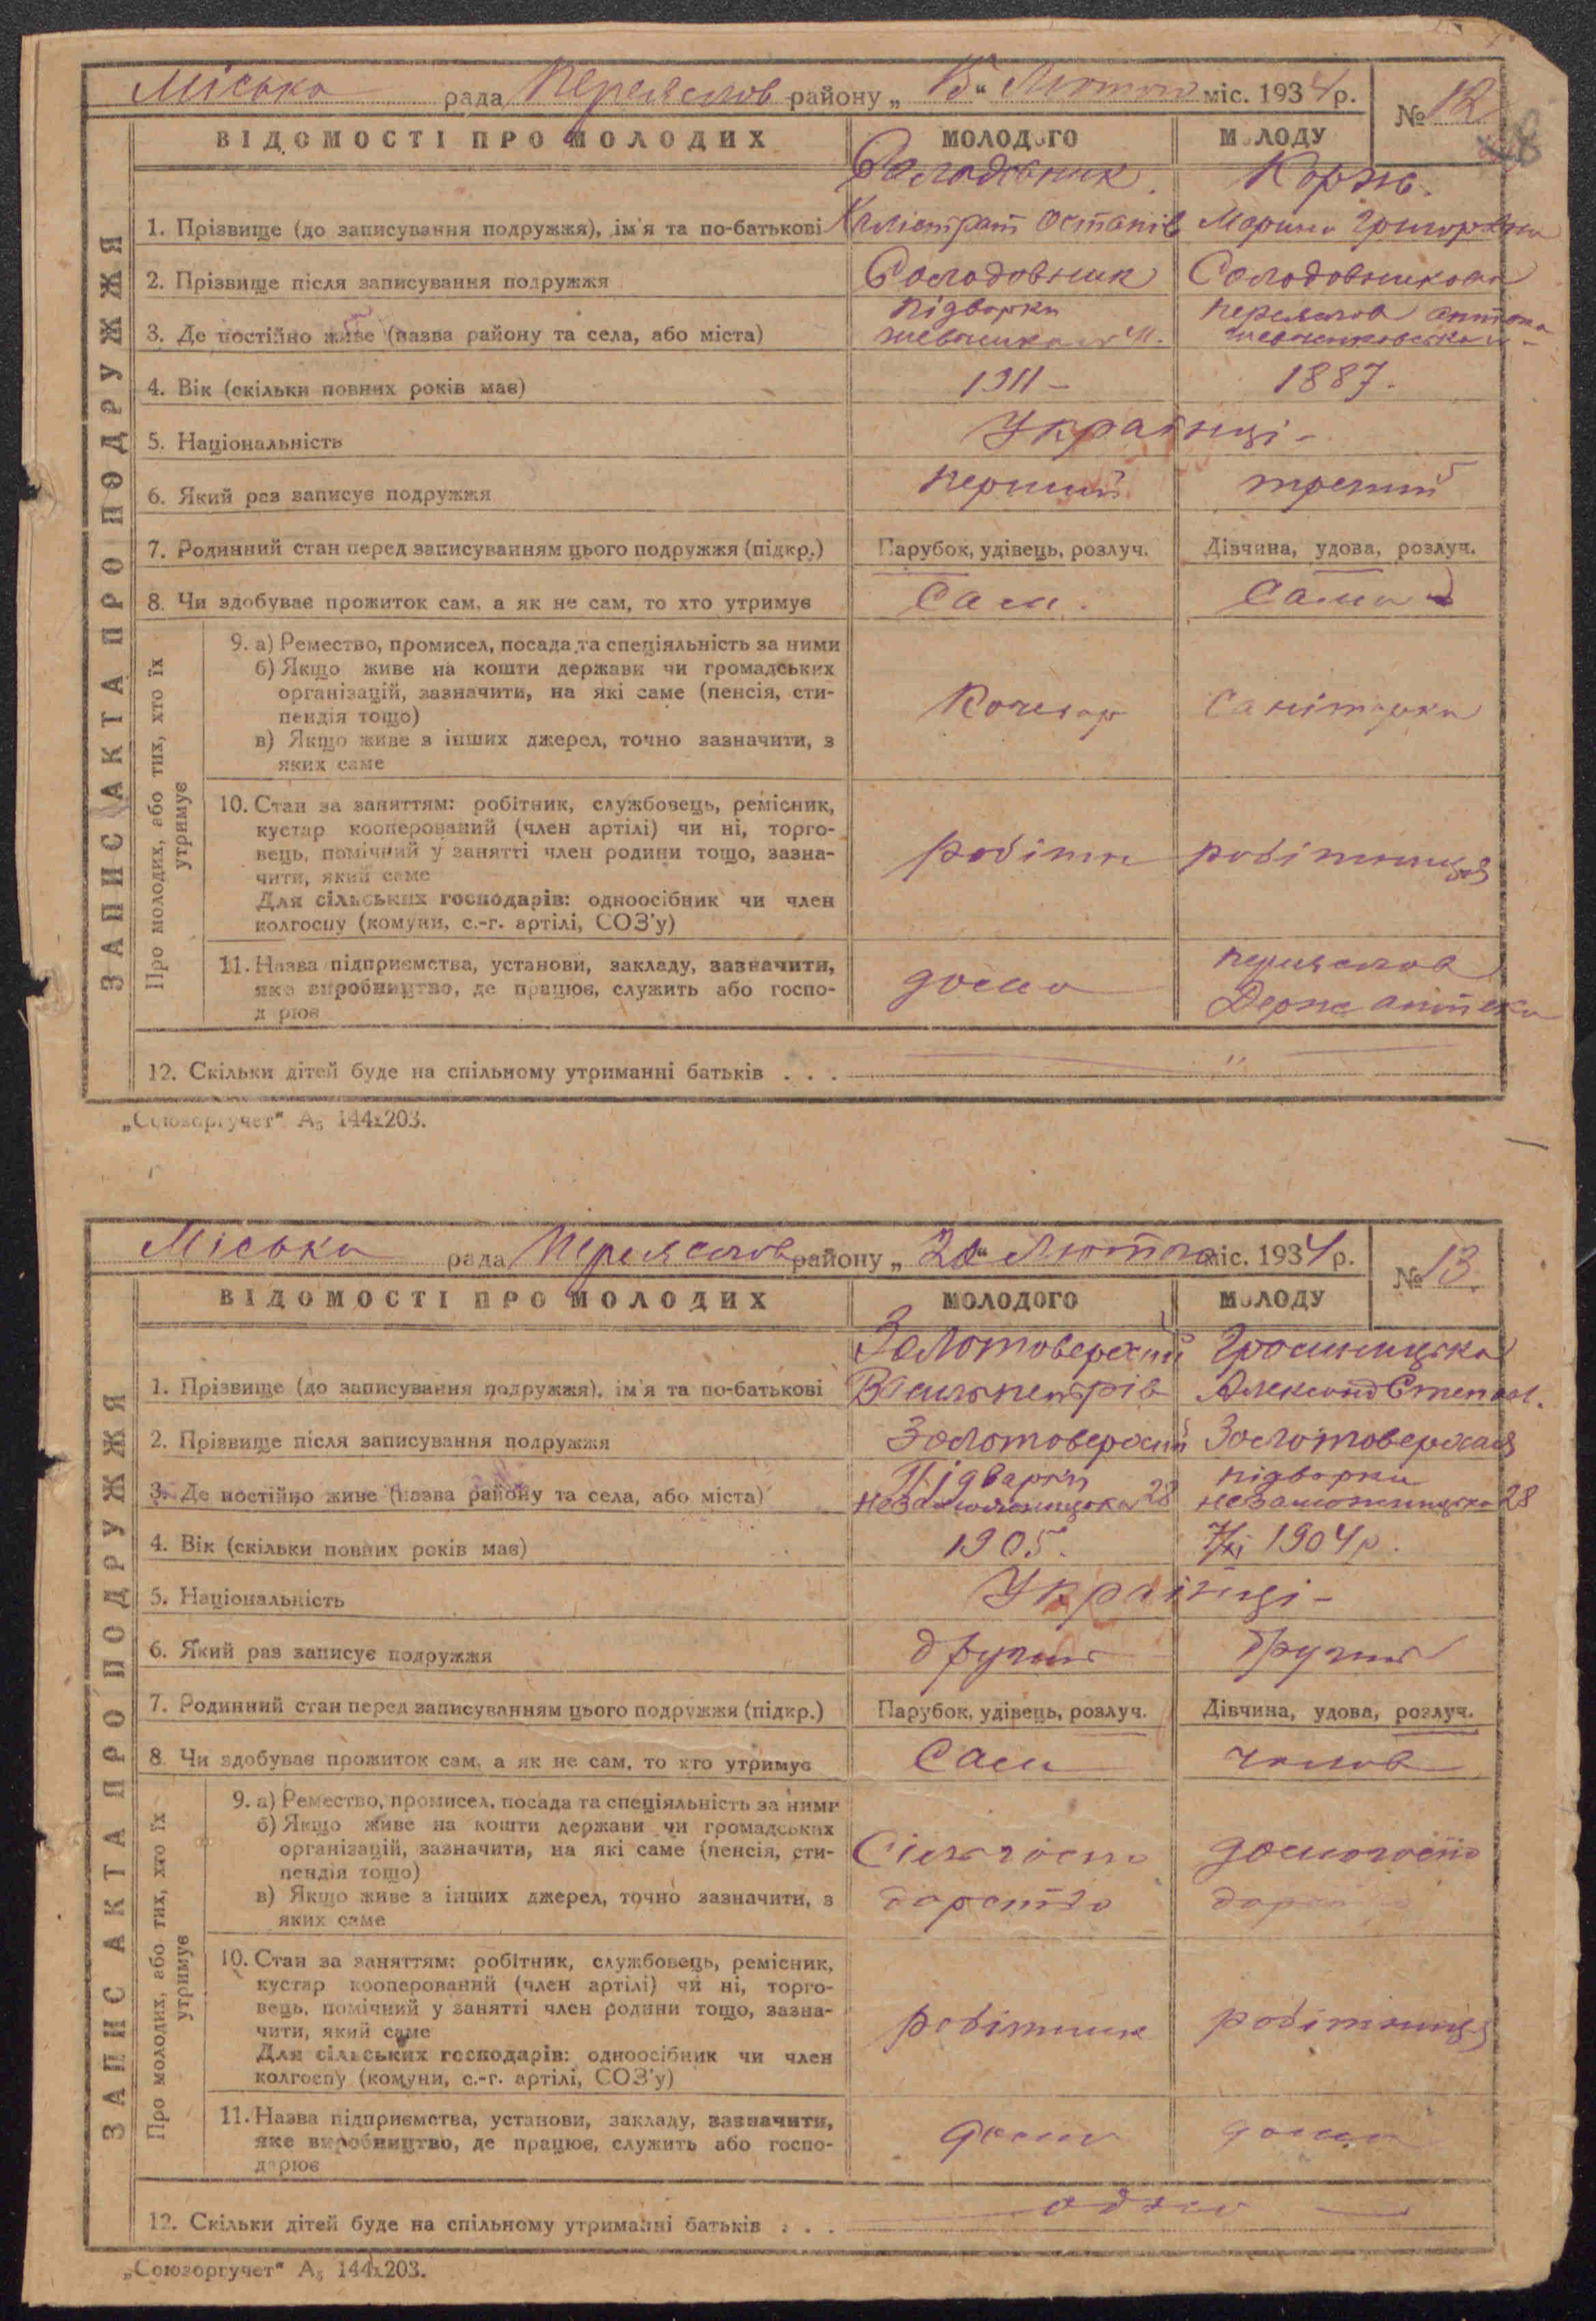 Міська рада Переяслов району „15" Лютого міс. 1934 р. № 12
ВІДОМОСТІ ПРО МОЛОДИХ МОЛОДОГО МОЛОДУ
Солодовник Корж
1. Прізвище (до записування подружжя), ім'я та по-батькові Калістрат Остапів Марина Григорівна
2. Прізвище після записування подружжя Солодовник Солодовникова
3. Де постійно живе (назва району та села, або міста) Підварки Переяслов аптека
4. Вік (скільки повних років має) 1911 – 1887.
5. Національність Українці –
6. Який раз записує подружжя перший третий
7. Родинний стан перед записуванням цього подружжя (підкр.) Парубок, удівець, розлуч. Дівчина, удова, розлуч.
8. Чи здобуває прожиток сам, а як не сам, то хто утримує Сам. Сама
ЗАПИС АКТА ПРО ПОДРУЖЖЯ
Про молодих, або тих, хто їх утримує
9. а) Ремество, промисел, посада та спеціяльність за ними
б) Якщо живе на кошти держави чи громадських
організацій, зазначити, на які саме (пенсія, сти-
пендія тощо) Кочегар Санітарка
в) Якщо живе з інших джерел, точно зазначити, з
яких саме
10. Стан за заняттям: робітник, службовець, ремісник,
кустар кооперований (член артілі) чи ні, торго-
вець, помічний у занятті член родини тощо, зазна- робітн робітниця
чити, який саме
Для сільських господарів: одноосібник чи член
колгоспу (комуни, с.-г. артілі, СОЗ'у)
11. Назва підприємства, установи, закладу, зазначити, Переяслов
яке виробництво, де працює, служить або госпо- дома Держ аптека
дарює
12. Скільки дітей буде на спільному утриманні батьків . . . "
„Союзоргучет" А5 144х203.
Міська рада Переяслов району „ " Лютого міс. 1934 р. № 13
ВІДОМОСТІ ПРО МОЛОДИХ МОЛОДОГО МОЛОДУ
Золотоверхий
1. Прізвище (до записування подружжя), ім'я та по-батькові Василь Петрів Александ Степан.
2. Прізвище після записування подружжя Золотоверхий Золотоверхая
Підварки підварки
3. Де постійно живе (назва району та села, або міста) Незаможницька 28 незаможницька 28
4. Вік (скільки повних років має) 1905. 7/XI 1904 р.
5. Національність Українці –
6. Який раз записує подружжя другий другий
7. Родинний стан перед записуванням цього подружжя (підкр.) Парубок, удівець, розлуч. Дівчина, удова, розлуч.
8. Чи здобуває прожиток сам, а як не сам, то хто утримує Сам чолов
ЗАПИС АКТА ПРО ПОДРУЖЖЯ
Про молодих, або тих, хто їх утримує
9. а) Ремество, промисел, посада та спеціяльність за ними
б) Якщо живе на кошти держави чи громадських
організацій, зазначити, на які саме (пенсія, сти- Сільгоспо домогоспо
пендія тощо)
в) Якщо живе з інших джерел, точно зазначити, з дарство дар
яких саме
10. Стан за заняттям: робітник, службовець, ремісник,
кустар кооперований (член артілі) чи ні, торго-
вець, помічний у занятті член родини тощо, зазна- робітник робітниця
чити, який саме
Для сільських господарів: одноосібник чи член
колгоспу (комуни, с.-г. артілі, СОЗ'у)
11. Назва підприємства, установи, закладу, зазначити,
яке виробництво, де працює, служить або госпо- дома дома
дарює
12. Скільки дітей буде на спільному утриманні батьків . . . одно
„Союзоргучет" А5 144х203.